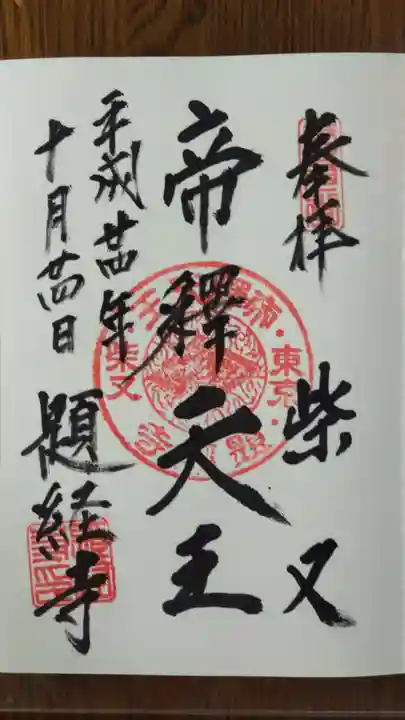 奉拝
柴又
帝釋天王
平成廿四年
十月廿四日
題経寺
東京・柴又